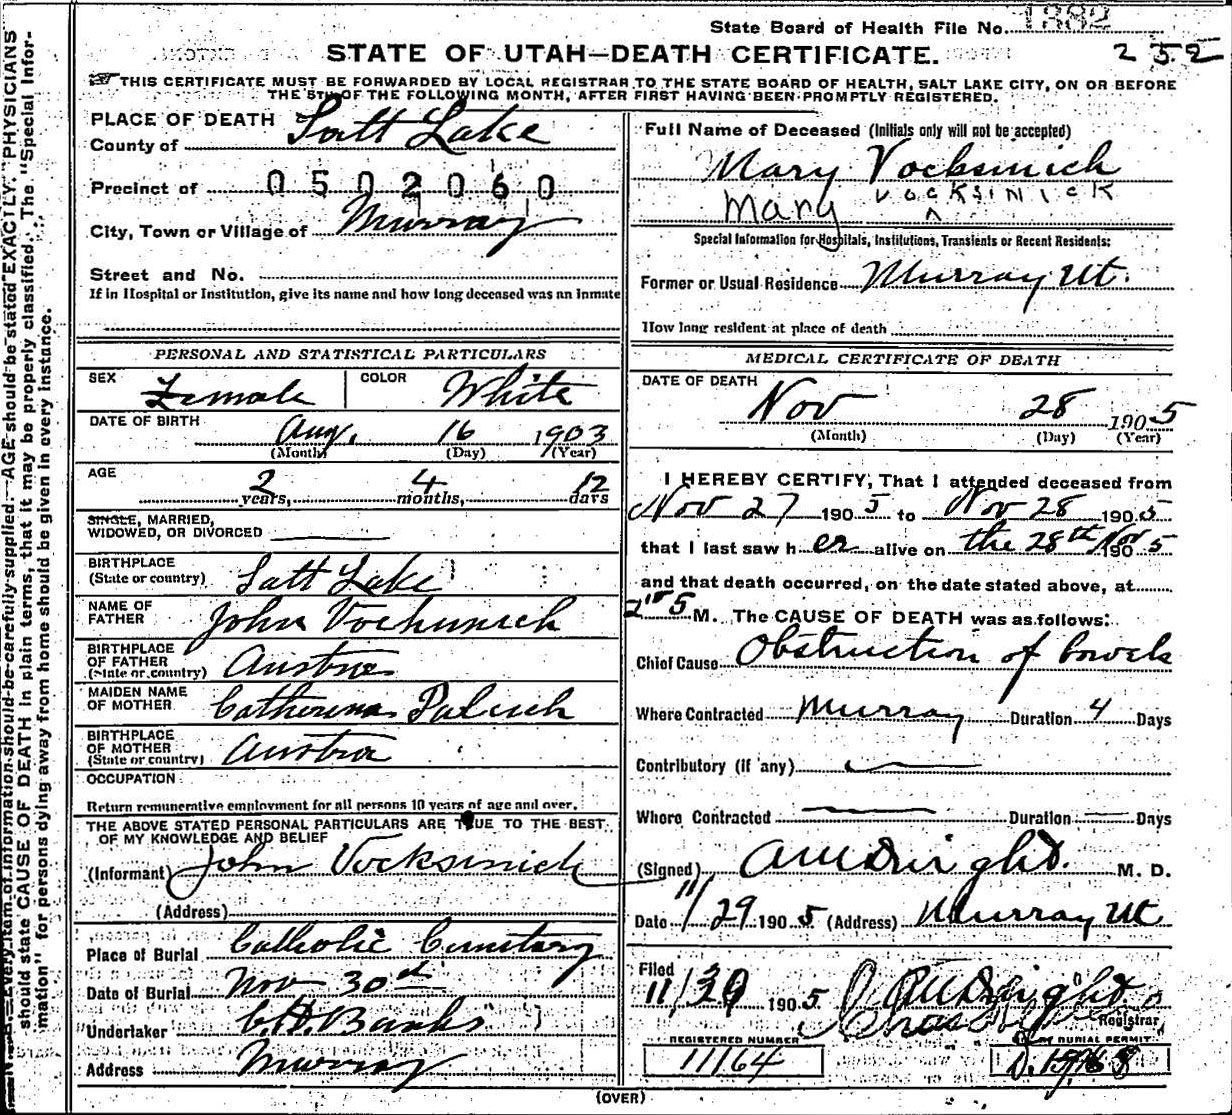 State Board of Health File No. 1882
STATE OF UTAH—DEATH CERTIFICATE.
252
THIS CERTIFICATE MUST BE FORWARDED BY LOCAL REGISTRAR TO THE STATE BOARD OF HEALTH, SALT LAKE CITY, ON OR BEFORE
THE 5TH OF THE FOLLOWING MONTH, AFTER FIRST HAVING BEEN PROMPTLY REGISTERED.
Every item of information should be carefully supplied. AGE should be stated EXACTLY. PHYSICIANS
should state CAUSE OF DEATH in plain terms, that it may be properly classified. The "Special Infor-
mation" for persons dying away from home should be given in every instance.
PLACE OF DEATH
County of Salt Lake
Precinct of 0502060
City, Town or Village of Murray
Street and No.
If in Hospital or Institution, give its name and how long deceased was an inmate
PERSONAL AND STATISTICAL PARTICULARS
SEX Female COLOR White
DATE OF BIRTH Aug. 16 1903
(Month) (Day) (Year)
AGE 2 years, 4 months, 12 days
SINGLE, MARRIED,
WIDOWED, OR DIVORCED
BIRTHPLACE
(State or country) Salt Lake
NAME OF
FATHER John Vochsinich
BIRTHPLACE
OF FATHER
(State or country) Austria
MAIDEN NAME
OF MOTHER Catherina Palich
BIRTHPLACE
OF MOTHER
(State or country) Austria
OCCUPATION
Return remunerative employment for all persons 10 years of age and over.
THE ABOVE STATED PERSONAL PARTICULARS ARE TRUE TO THE BEST
OF MY KNOWLEDGE AND BELIEF
(Informant) John Vocksinich
(Address)
Place of Burial Catholic Cemetery
Date of Burial Nov 30
Undertaker C.H. Banks
Address Murray
Full Name of Deceased (Initials only will not be accepted)
Mary Vocksinich
Mary VOCKSINICK
Special Information for Hospitals, Institutions, Transients or Recent Residents:
Former or Usual Residence Murray Ut.
How long resident at place of death
MEDICAL CERTIFICATE OF DEATH
DATE OF DEATH
Nov 28 1905
(Month) (Day) (Year)
I HEREBY CERTIFY, That I attended deceased from
Nov 27 1905 to Nov 28 1905
that I last saw her alive on the 28th Nov 1905
and that death occurred, on the date stated above, at
M. The CAUSE OF DEATH was as follows:
Chief Cause Obstruction of bowels
Where Contracted Murray Duration 4 Days
Contributory (if any)
Where Contracted Duration Days
(Signed) M. D.
Date 11/29 1905 (Address) Murray Ut
Filed 11/30 1905
Registrar
REGISTERED NUMBER
11164
BURIAL PERMIT
(OVER)